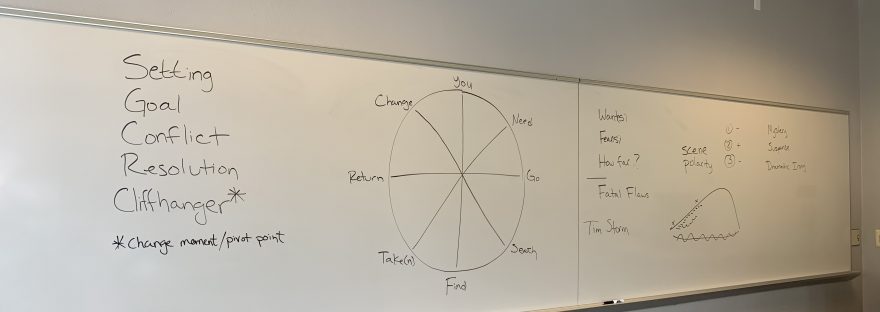 Setting
Goal
Conflict
Resolution
Cliffhanger*
* Change moment/pivot point
You
Need
Go
Search
Find
Take(n)
Return
Change
Wants:
Fears:
How far?
Fatal Flaws
Tim Storm
scene
polarity
① -
② +
③ -
Mystery
Suspense
Dramatic Irony